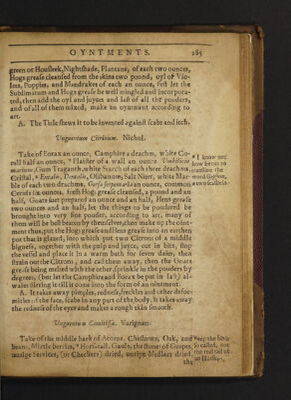 OYNTMENTS. 285
green or Housleek, Nightshade, Plantane, of each two ounces,
Hogs grease cleansed from the skins two pound, oyl of Vio-
lets, Poppies, and Mandrakes of each an ounce, first let the
Sublimatum and Hogs grease be well mingled and incorpora-
ted, then add the oyl and juyces and last of all the pouders,
and of all of them mixed, make an oyntment according to
art.
A. The Title shews it to be invented against scabs and itch.
Unguentum Citrinum. Nichol.
Take of Borax an ounce, Camphire a drachm, white Co-
rall half an ounce, * Plaister of a wall an ounce Umbilicus
marinus, Gum Traganth, white Starch of each three drachms,
Cristal, * Olibanum, Salt Niter, white Mar-
ble of each two drachms, Gersa serpentaria an ounce, common
Ceruss six ounces, fresh Hogs grease cleansed, a pound and an
half, Goats suet prepared an ounce and an half, Hens grease
two ounces and an half, let the things to be poudered be
brought into very fine pouder, according to art, many of
them will be best beaten by themselves, then make up the oint-
ment thus, put the Hogs grease and Hens grease into an earthen
pot that is glazed, into which put two Citrons of a middle
bigness, together with the pulp and juyce, cut in bits, stop
the vessel and place it in a warm bath for seven daies, then
strain out the Citrons, and cast them away, then the Goats
grease being melted with the other, sprinkle in the pouders by
degrees, (but let the Camphire and Borax be put in last) al-
waies stirring it till it come into the form of an ointment.
A. It takes away pimples, redness, freckles and other defor-
mities of the face, scabs in any part of the body. It takes away
the redness of the eyes and makes a rough skin smooth.
* I know not
how better to
translate the
word
Unguentum Comitissæ. Varignan.
Take of the middle bark of Acorns, Chesnuts, Oak, and
beans, Mirtle berries, * Horstail, Gauls, the stones of Grapes,
unripe Services, (or Checkers) dried, unripe Medlars dried,
the
so called, nor
the red tail of
an Horse.